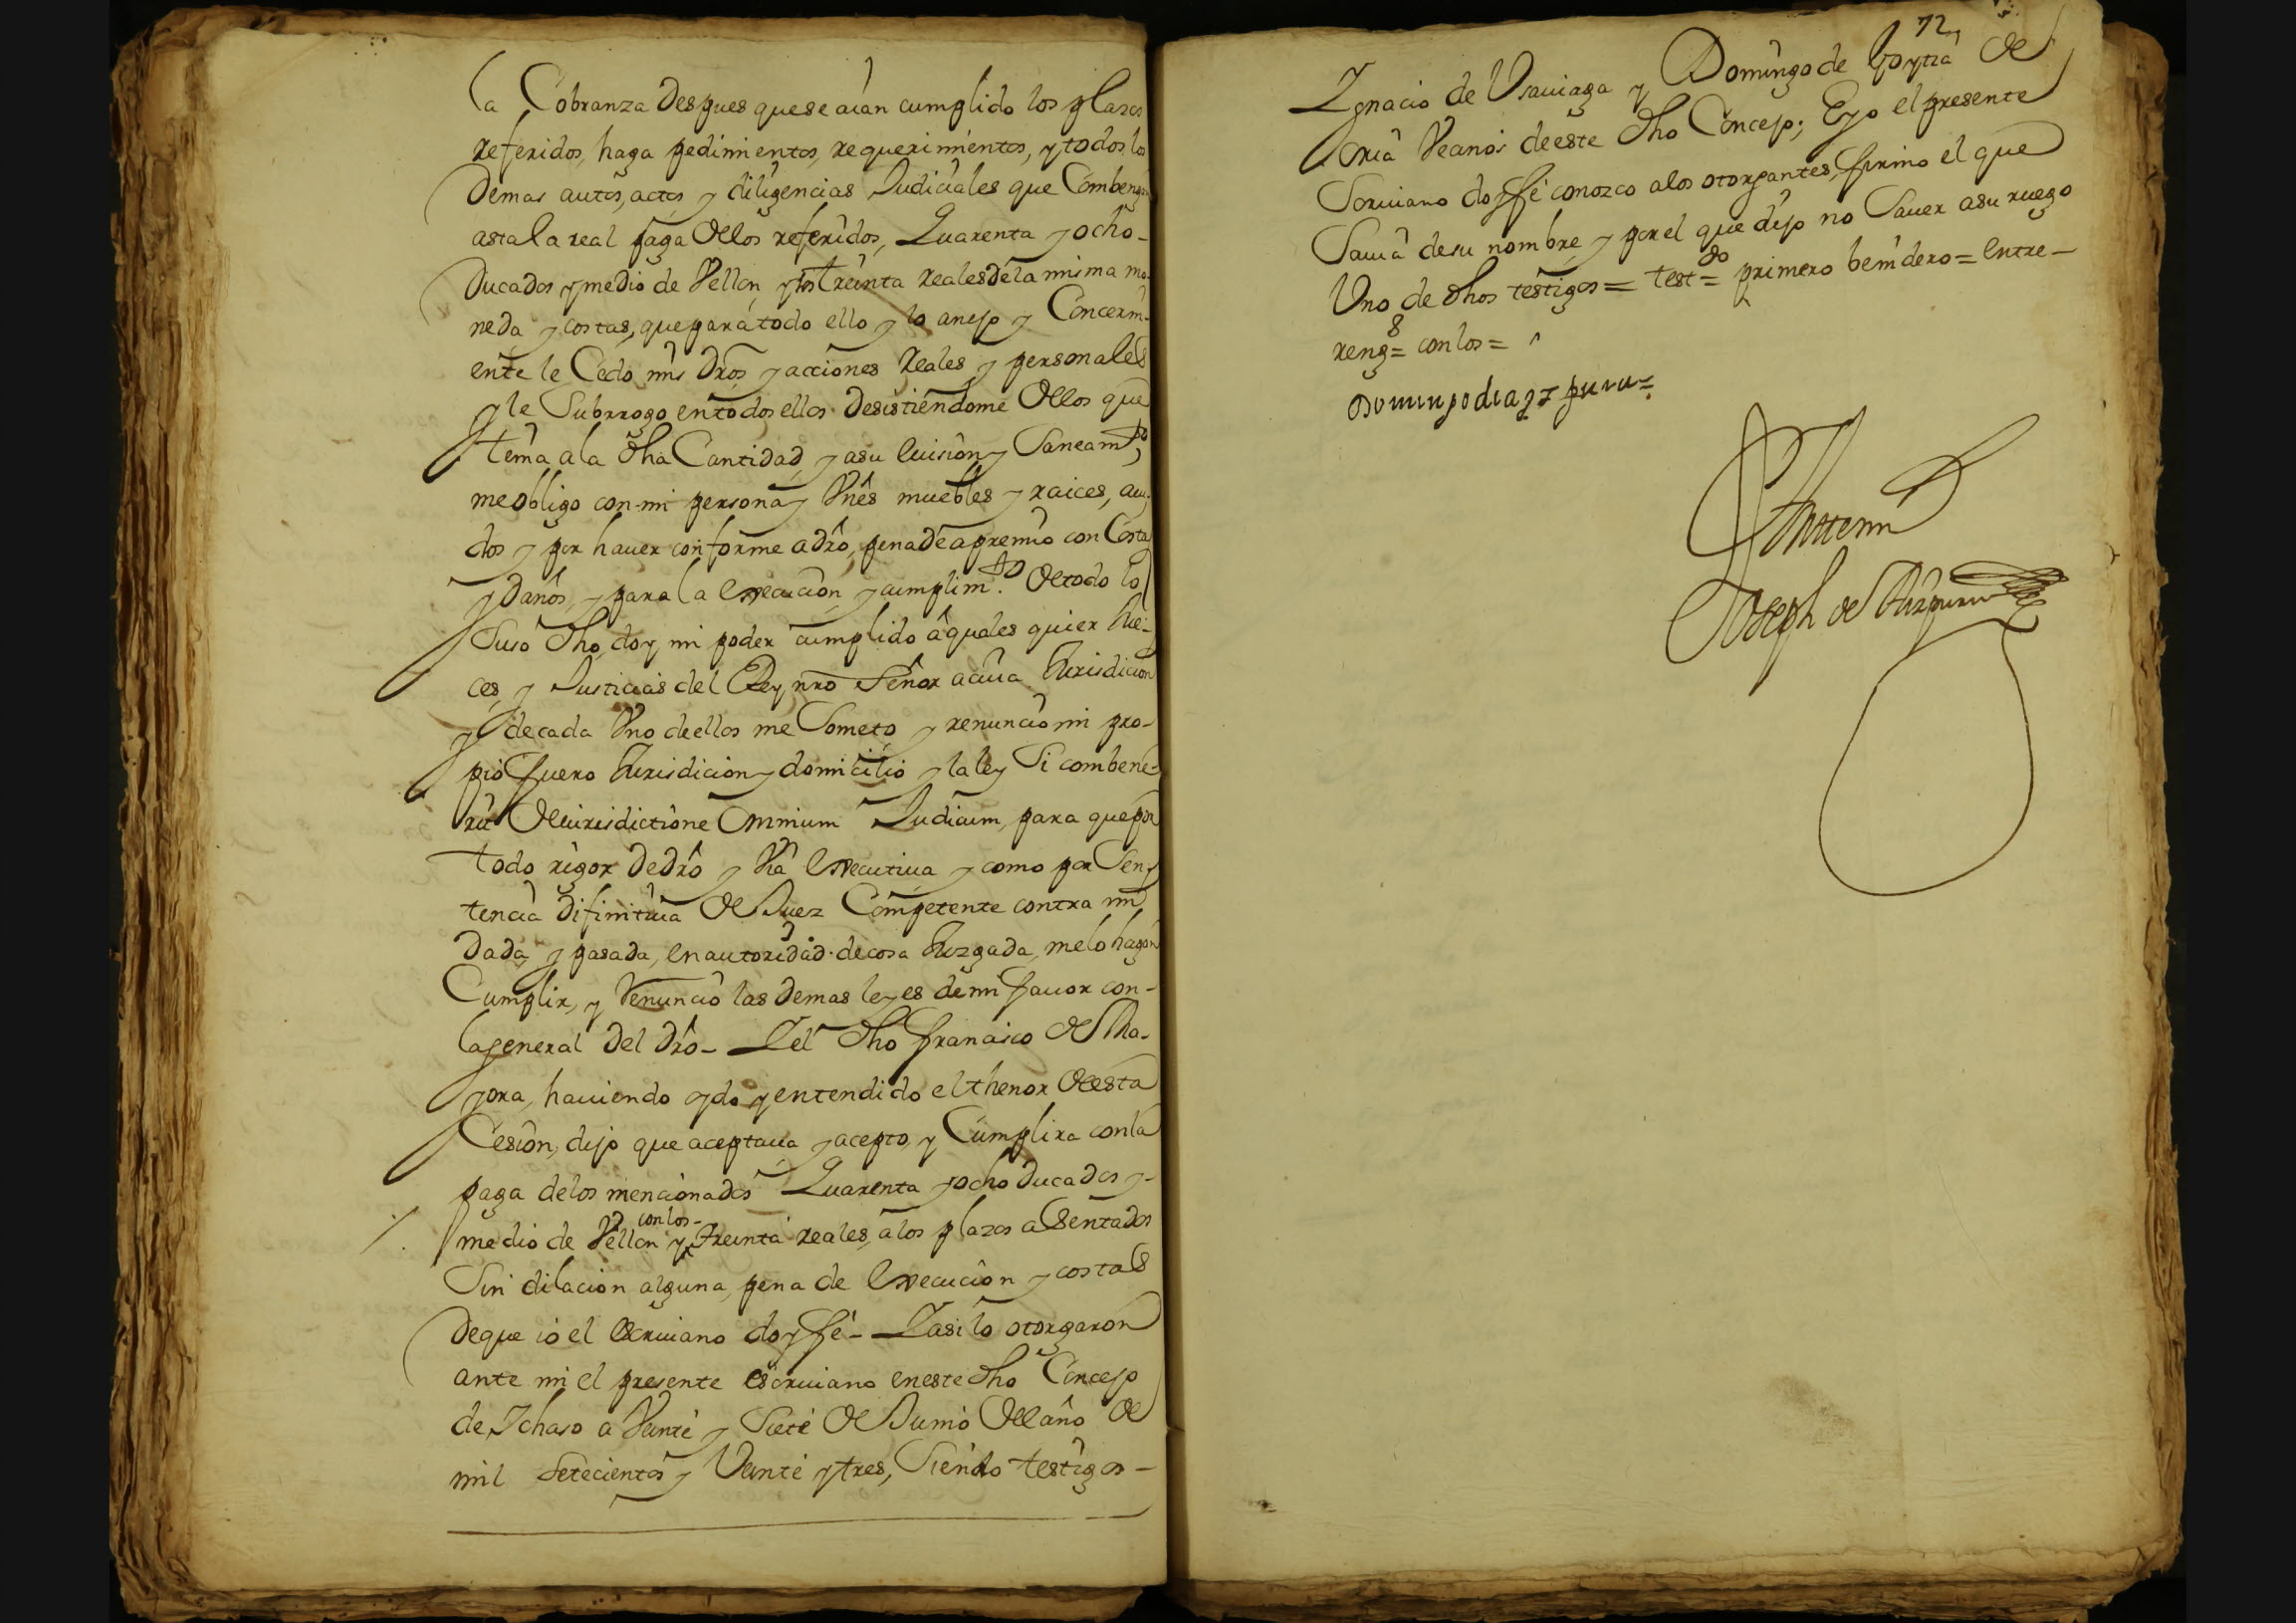 la Cobranza Despues que se aian cumplido los plazos
referidos, haga pedimientos, requerimientos, y todos los
Demas autos, actos y diligencias Judiciales que Combengan
asta la real paga de los referidos, Quarenta y ocho-
Ducados y medio de Vellon, y los treinta reales de la misma mo-
neda y costas, que para todo ello y lo anejo y Concerni-
ente le Cedo mis dros y acciones Reales y personales
y le Subrrogo en todos ellos. Desistiendome de los que
tenia a la dha Cantidad y a su evision y Saneamto,
me obligo con mi persona y Vnes muebles y raices, aui-
dos y por hauer conforme a dro, pena de apremio con Costas
y Daños, y para la execucion y cumplimto de todo lo
Suso dho, doy mi poder cumplido a quales quier Jue-
ces, y Justicias del Rey nro Señor a cuia Jurisdicion
y de cada Vno de ellos me Someto y renuncio mi pro-
pio fuero Jurisdicion y domicilio y la ley Si combene-
rit de iurisdictione Omnium Judicum, para que por
todo rigor de dro y Via executiua y como por Sen-
tencia difinitiua de Juez Competente contra mi
Dada y pasada, en autoridad de cosa Juzgada, me lo hagan
Cumplir, y Renuncio las Demas leyes de mi fauor con-
la general Del dro- Y el dho francisco de Ma-
yora, hauiendo oydo y entendido el thenor de esta
Cesion, dijo que aceptaua y acepto, y Cumplira con la
paga de los mencionados Quarenta y ocho Ducados y-
con los-
medio de Vellon y treinta reales, a los plazos asentados
Sin dilacion alguna, pena de execucion y costas
De que io el escriuano doy fé- Y asi lo otorgaron
ante mi el presente escriuano en este dho Concejo
de Ichaso a Veinte y Siete de Junio del año de
mil Setecientos y Veinte y tres, Siendo testigos-
72
Ygnacio de Vsauiaga y Domingo de Goytia de
oria Veçinos de este dho Concejo; E yo el presente
Scriuano doy fé conozco a los otorgantes, firmo el que
Sauia de su nombre, y por el que dijo no Sauer a su ruego
Uno de dhos testigos= testdo= primero = entre-
reng= con los=
Ante mi
Joseph de Aizpuru